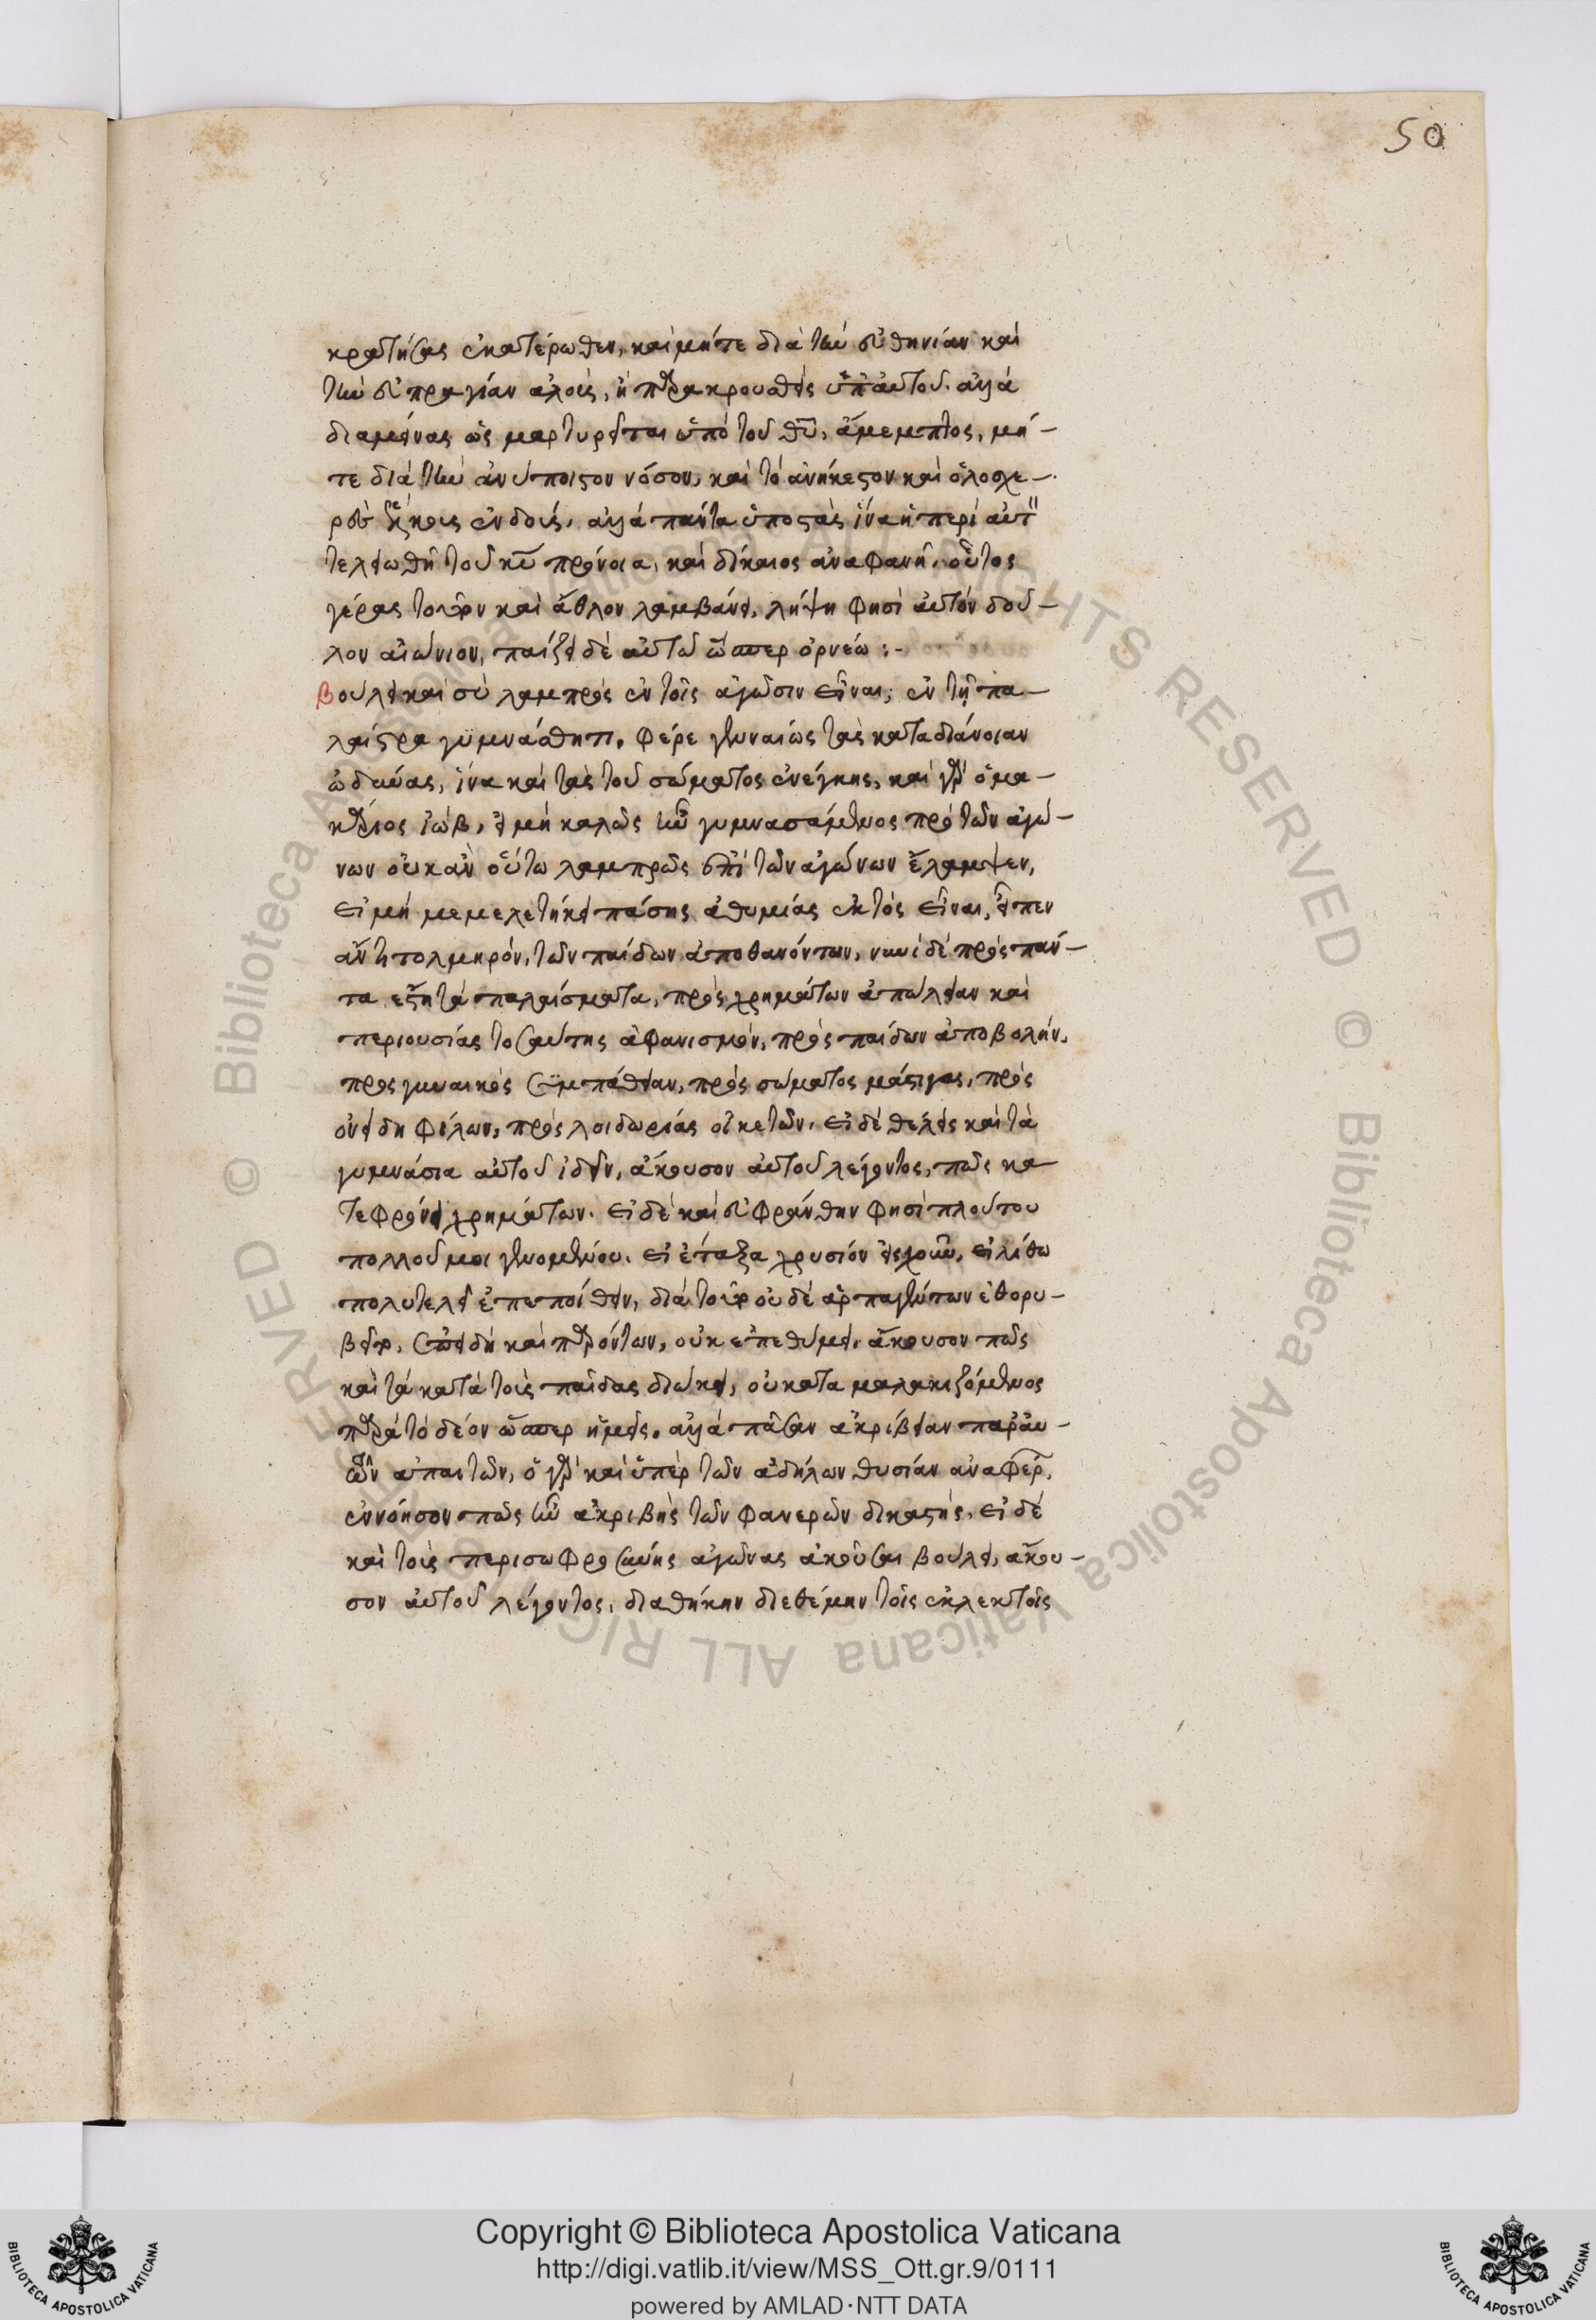 50
κρατήσας ἑκατέρωθεν, καὶ μήτε διὰ τὴν εὐθηνίαν καὶ
τὴν εὐπραγίαν ἁλοὺς, ἢ παρακρουσθεὶς ὑπ' αὐτοῦ. ἀλλὰ
διαμείνας ὡς μαρτυρεῖται ὑπὸ τοῦ θυ, ἄμεμπτος, μή-
τε διὰ τὴν ἀνύποιστον νόσον, καὶ τὸ ἀνήκεστον καὶ ὁλοσχε-
ρὲς ἐνδοὺς, ἀλλὰ πάντα ὑποστὰς ἵνα ἡ περὶ αὐτ
τελειωθῆ τοῦ κυ πρόνοια, καὶ δίκαιος ἀναφανῆ. οὗτος
γέρας τοίνυν καὶ ἆθλον λαμβάνει, λήψη φησὶ αὐτὸν δοῦ-
λον αἰώνιον, παίξει δὲ αὐτῶ ὥσπερ ὀρνέω :-
Βούλει καὶ σὺ λαμπρὸς ἐν τοῖς ἀγῶσιν εἶναι; ἐν τῆ πα-
λαίστρα γυμνάσθητι. φέρε γενναίως τὰς κατὰ διάνοιαν
ὠδύνας, ἵνα καὶ τὰς τοῦ σώματος ἐνέγκης, καὶ γὰρ ὁ μα-
κάριος ἰώβ, εἰ μὴ καλῶς ἦν γυμνασάμενος πρὸ τῶν ἀγώ-
νων οὐκ ἂν οὕτω λαμπρῶς ἐπὶ τῶν ἀγώνων ἔλαμψεν,
εἰ μὴ μεμελετήκει πάσης ἀθυμίας ἐκτὸς εἶναι, εἶπεν
ἄν τι τολμηρόν, τῶν παίδων ἀποθανόντων, νυνὶ δὲ πρὸς πάν-
τα ἔστη τὰ παλαίσματα, πρὸς χρημάτων ἀπώλειαν καὶ
περιουσίας τοσαύτης ἀφανισμόν, πρὸς παίδων ἀποβολήν,
πρὸς γυναικὸς συμπάθειαν, πρὸς σώματος μάστιγας, πρὸς
ὀνείδη φίλων, πρὸς λοιδωρίας οἰκετῶν. εἰ δὲ θέλεις καὶ τὰ
γυμνάσια αὐτοῦ ἰδεῖν, ἄκουσον αὐτοῦ λέγοντος, πῶς κα
τεφρόνει χρημάτων. εἰ δὲ καὶ εὐφράνθην φησὶ πλούτου
πολλοῦ μοι γενομένου. εἰ ἔταξα χρυσίον εἰς χοῦν, εἰ λίθω
πολυτελεῖ ἐπεποίθειν, διὰ τοῦτο οὐδὲ ἁρπαγέντων ἐθορυ-
βεῖτο, ἐπειδὴ καὶ παρόντων, οὐκ ἐπεθύμει. ἄκουσον πῶς
καὶ τὰ κατὰ τοὺς παῖδας διώκει, οὐ καταμαλακιζόμενος
παρὰ τὸ δέον ὥσπερ ἡμεῖς. ἀλλὰ πᾶσαν ἀκρίβειαν παρ' αυ-
τῶν ἀπαιτῶν, ὁ γὰρ καὶ ὑπὲρ τῶν ἀδήλων θυσίαν ἀναφέρ,
ἐννόησον πῶς ἦν ἀκριβὴς τῶν φανερῶν δικαστής. εἰ δὲ
καὶ τοὺς περὶ σωφροσύνης ἀγῶνας ἀκοῦσαι βούλει, ἄκου-
σον αὐτοῦ λέγοντος, διαθήκην διεθέμην τοῖς ἐκλεκτοῖς
Copyright © Biblioteca Apostolica Vaticana
http://digi.vatlib.it/view/MSS_Ott.gr.9/0111
powered by AMLAD·NTT DATA
© Biblioteca Apostolica Vaticana ALL RIGHTS RESERVED
© Biblioteca Apostolica Vaticana ALL RIGHTS RESERVED
BIBLIOTECA APOSTOLICA VATICANA
BIBLIOTECA APOSTOLICA VATICANA